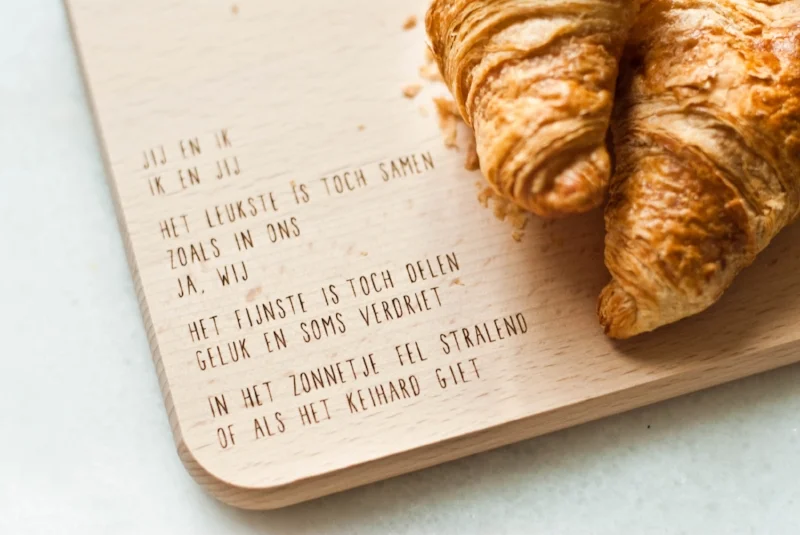 JIJ EN IK
IK EN JIJ
HET LEUKSTE IS TOCH SAMEN
ZOALS IN ONS
JA, WIJ
HET FIJNSTE IS TOCH DELEN
GELUK EN SOMS VERDRIET
IN HET ZONNETJE FEL STRALEND
OF ALS HET KEIHARD GIET